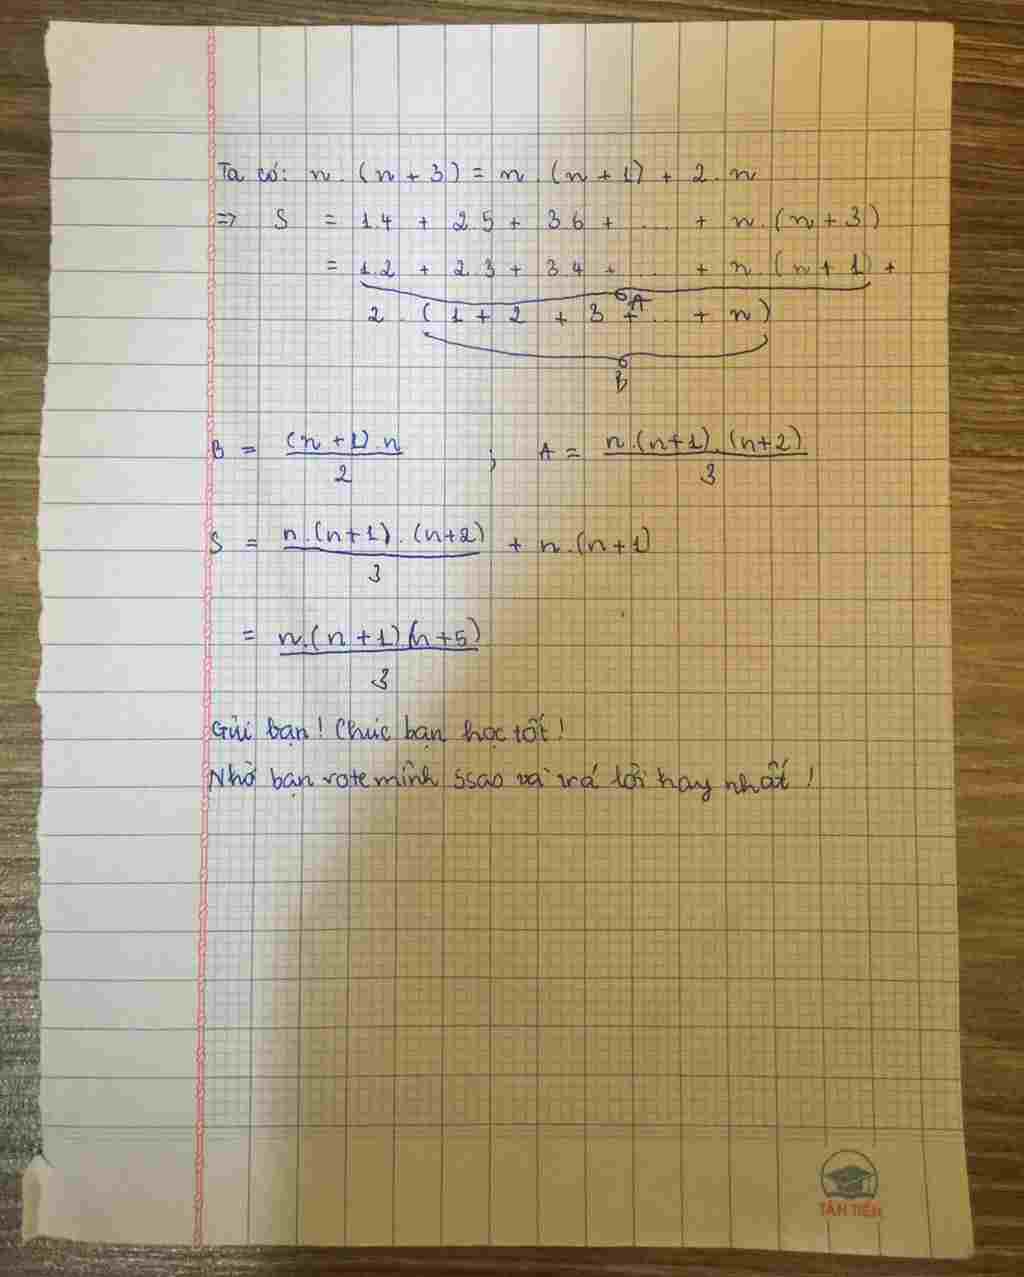 Ta có: n.(n+3) = n.(n+1) + 2.n
=> S = 1.4 + 2.5 + 3.6 + ... + n.(n+3)
= 1.2 + 2.3 + 3.4 + ... + n.(n+1) +
A
2.(1 + 2 + 3 + ... + n)
B
B = (n+1).n / 2 ; A = n.(n+1).(n+2) / 3
S = n.(n+1).(n+2) / 3 + n.(n+1)
= n.(n+1)(n+5) / 3
Gửi bạn! Chúc bạn học tốt!
Nhờ bạn vote mình 5sao và trả lời hay nhất!
TÂN TIẾN